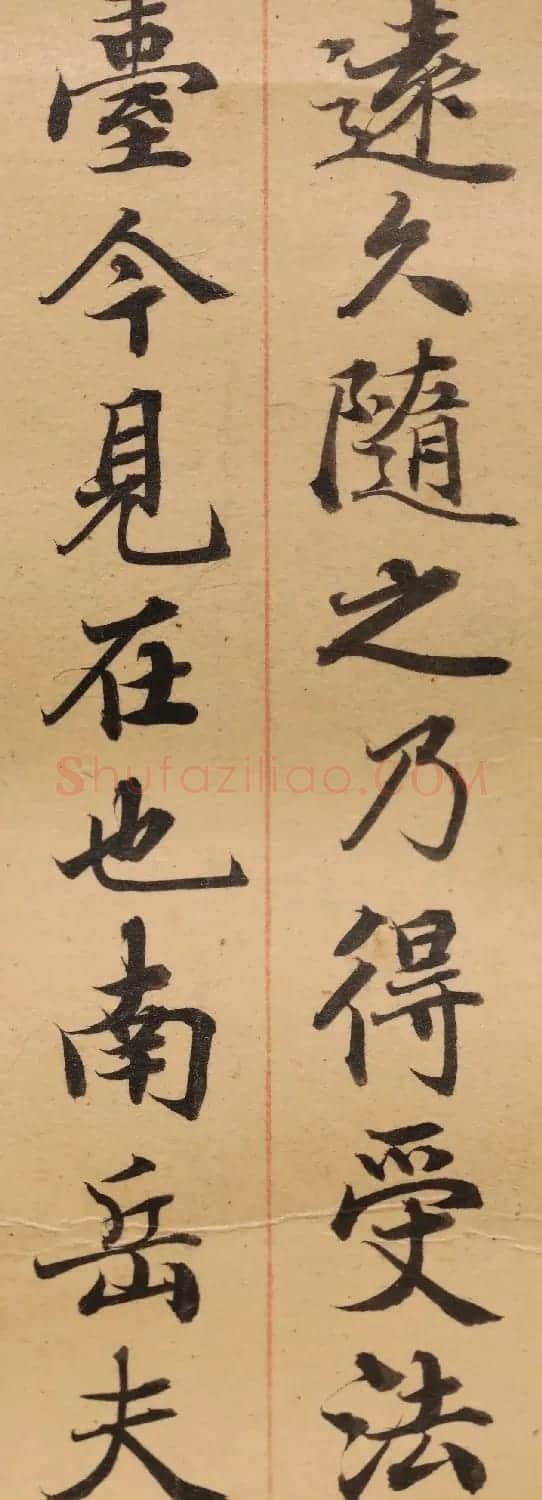 遠久隨之乃得受法
臺今見在也南岳夫
Shufaziliao.COM